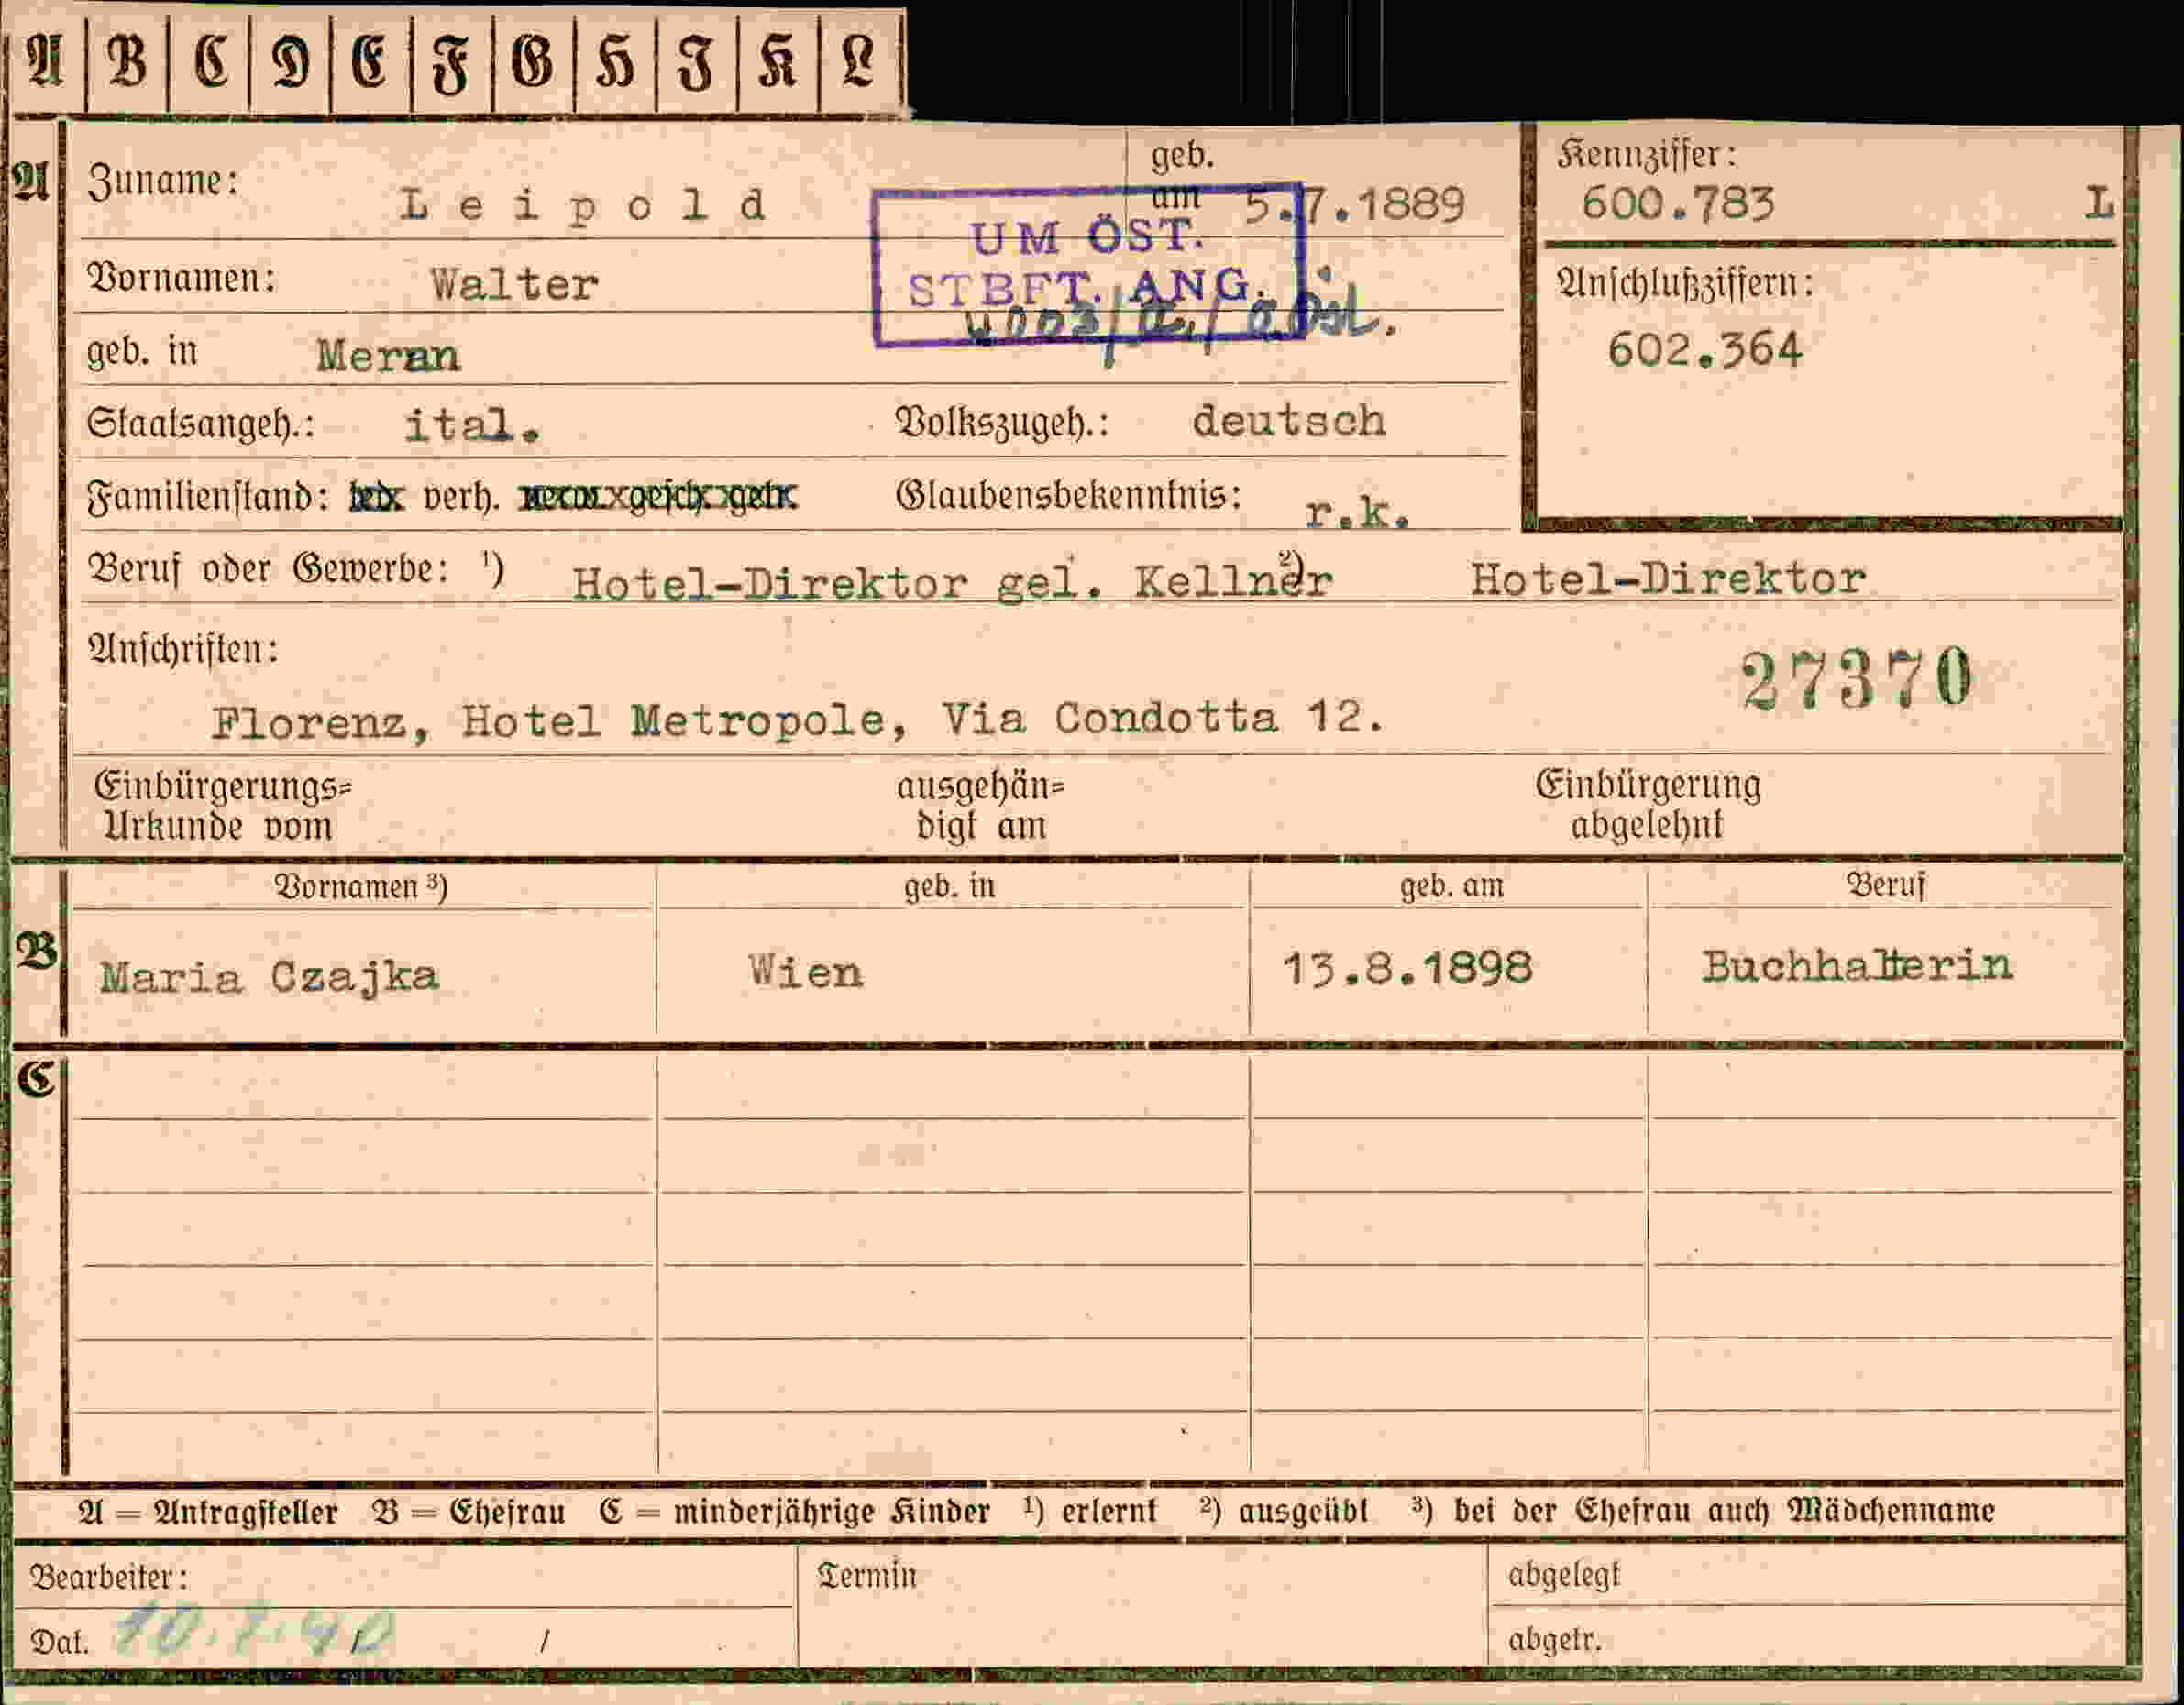 A B C D E F G H I K L
A
Zuname: Leipold
geb. am 5.7.1889
Kennziffer:
600.783 L
UM ÖST.
STBFT. ANG.
Vornamen: Walter
Anschlußziffern:
602.364
geb. in Meran
Staatsangeh.: ital. Volkszugeh.: deutsch
Familienstand: verh. Glaubensbekenntnis: r.k.
Beruf oder Gewerbe: ¹) Hotel-Direktor gel. Kellner ²) Hotel-Direktor
Anschriften:
27370
Florenz, Hotel Metropole, Via Condotta 12.
Einbürgerungs= ausgehän= Einbürgerung
Urkunde vom digt am abgelehnt
Vornamen ³) geb. in geb. am Beruf
B
Maria Czajka Wien 13.8.1898 Buchhalterin
C
A = Antragsteller B = Ehefrau C = minderjährige Kinder ¹) erlernt ²) ausgeübt ³) bei der Ehefrau auch Mädchenname
Bearbeiter: Termin abgelegt
Dat. / / abgetr.